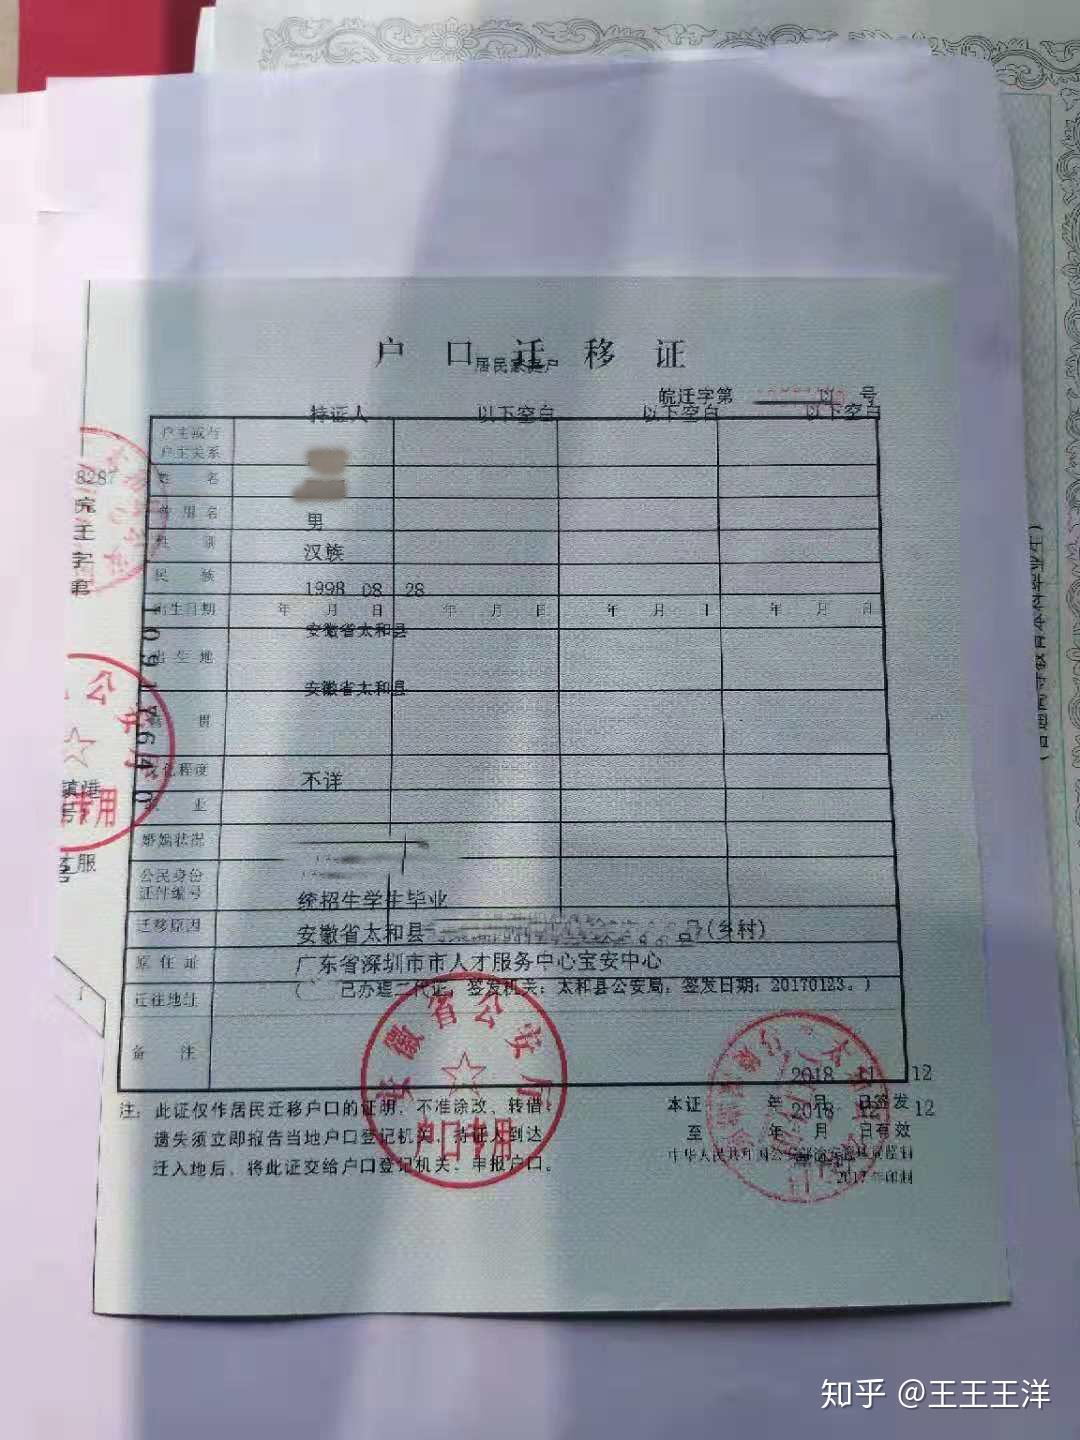 户口迁移证
居民家庭户
皖迁字第 号
持证人 以下空白 以下空白 以下空白
户主或与
户主关系
姓 名
曾用名
男
性 别
汉族
民 族
1998 08 28
出生日期 年 月 日 年 月 日 年 月 日 年 月 日
安徽省太和县
出生地
安徽省太和县
籍 贯
文化程度
不详
职 业
婚姻状况
公民身份
证件编号
统招生学生毕业
迁移原因
安徽省太和县 号(乡村)
原住址
广东省深圳市市人才服务中心宝安中心
迁往地址
( 已办理二代证，签发机关：太和县公安局，签发日期：20170123。)
备 注
2018 11 12
本证 年 月 日签发
2018 12 12
至 年 月 日有效
注：此证仅作居民迁移户口的证明，不准涂改、转借，
遗失须立即报告当地户口登记机关，持证人到达
迁入地后，将此证交给户口登记机关，申报户口。
2017年印制
安徽省公安厅
户口专用
8287
院
字
10917640
公安厅
专用
镇
号
服
知乎 @王王王洋